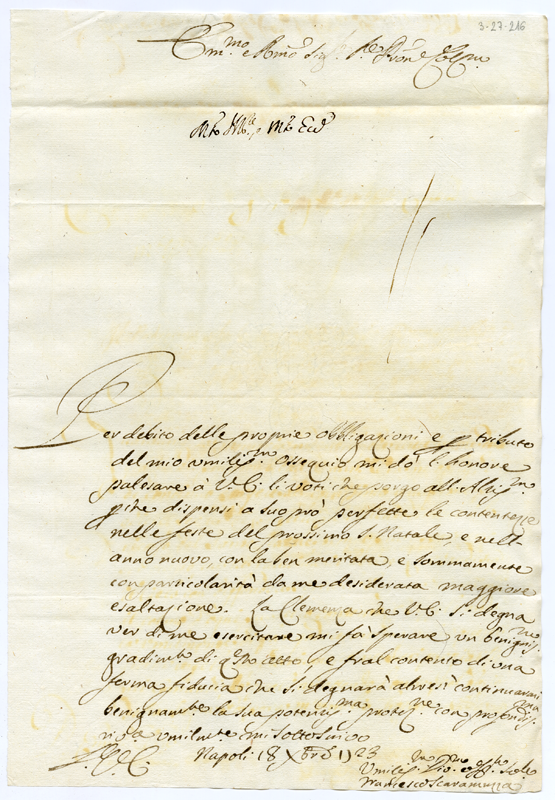 3-27-216
Em.mo e Rmo Sig.r Sig.r Pron Col.mo
Per debito delle proprie obbligazioni, e p tributo
del mio umiliss.mo ossequio mi dò l'honore
palesare à V.E. li voti che porgo all'Altiss.mo
p che dispensi a suo prò perfette le contentezze
nelle feste del prossimo S. Natale, e nell'
anno nuovo, con la ben meritata, e sommamente
con particolarità da me desiderata maggiore
esaltazione. La Clemenza che V.E. si degna
ver di me esercitare mi fà sperare un benigniss.mo
gradim.to di q.sto atto, e fral contento di una
ferma fiducia che si degnarà altresì continuarmi
benignam.te la sua potentiss.ma protez.ne con profondiss.ma
riv.a umilm.te mi sottoscrivo
Napoli 18 Xbre 1723
Umiliss.mo Div.mo
Francesco Scaramuzza